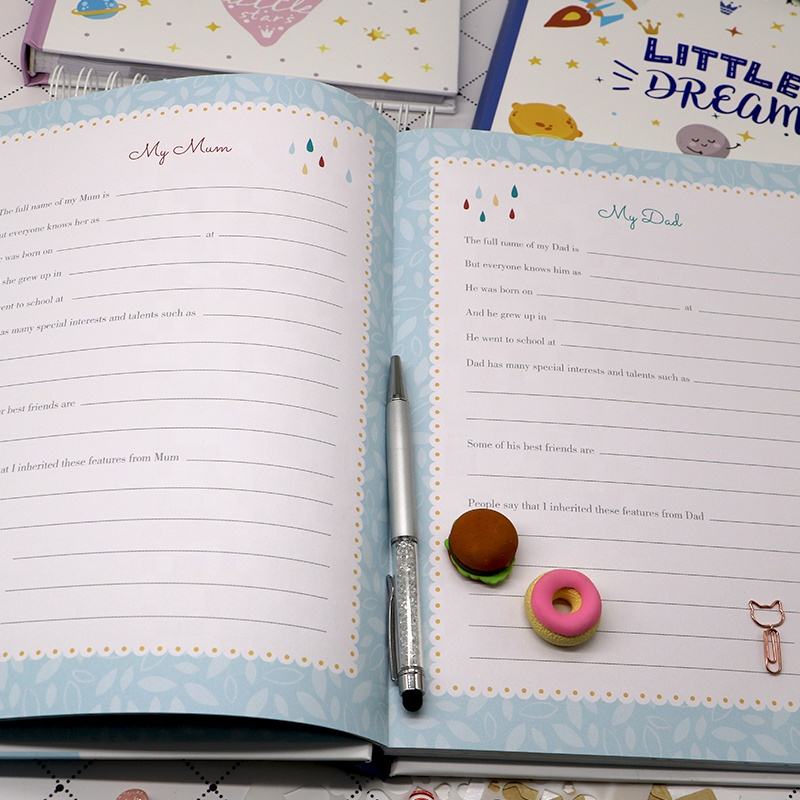 little
stars
LITTLE
DREAM
My Mum
The full name of my Mum is
But everyone knows her as
was born on at
she grew up in
went to school at
has many special interests and talents such as
best friends are
that I inherited these features from Mum
My Dad
The full name of my Dad is
But everyone knows him as
He was born on at
And he grew up in
He went to school at
Dad has many special interests and talents such as
Some of his best friends are
People say that I inherited these features from Dad